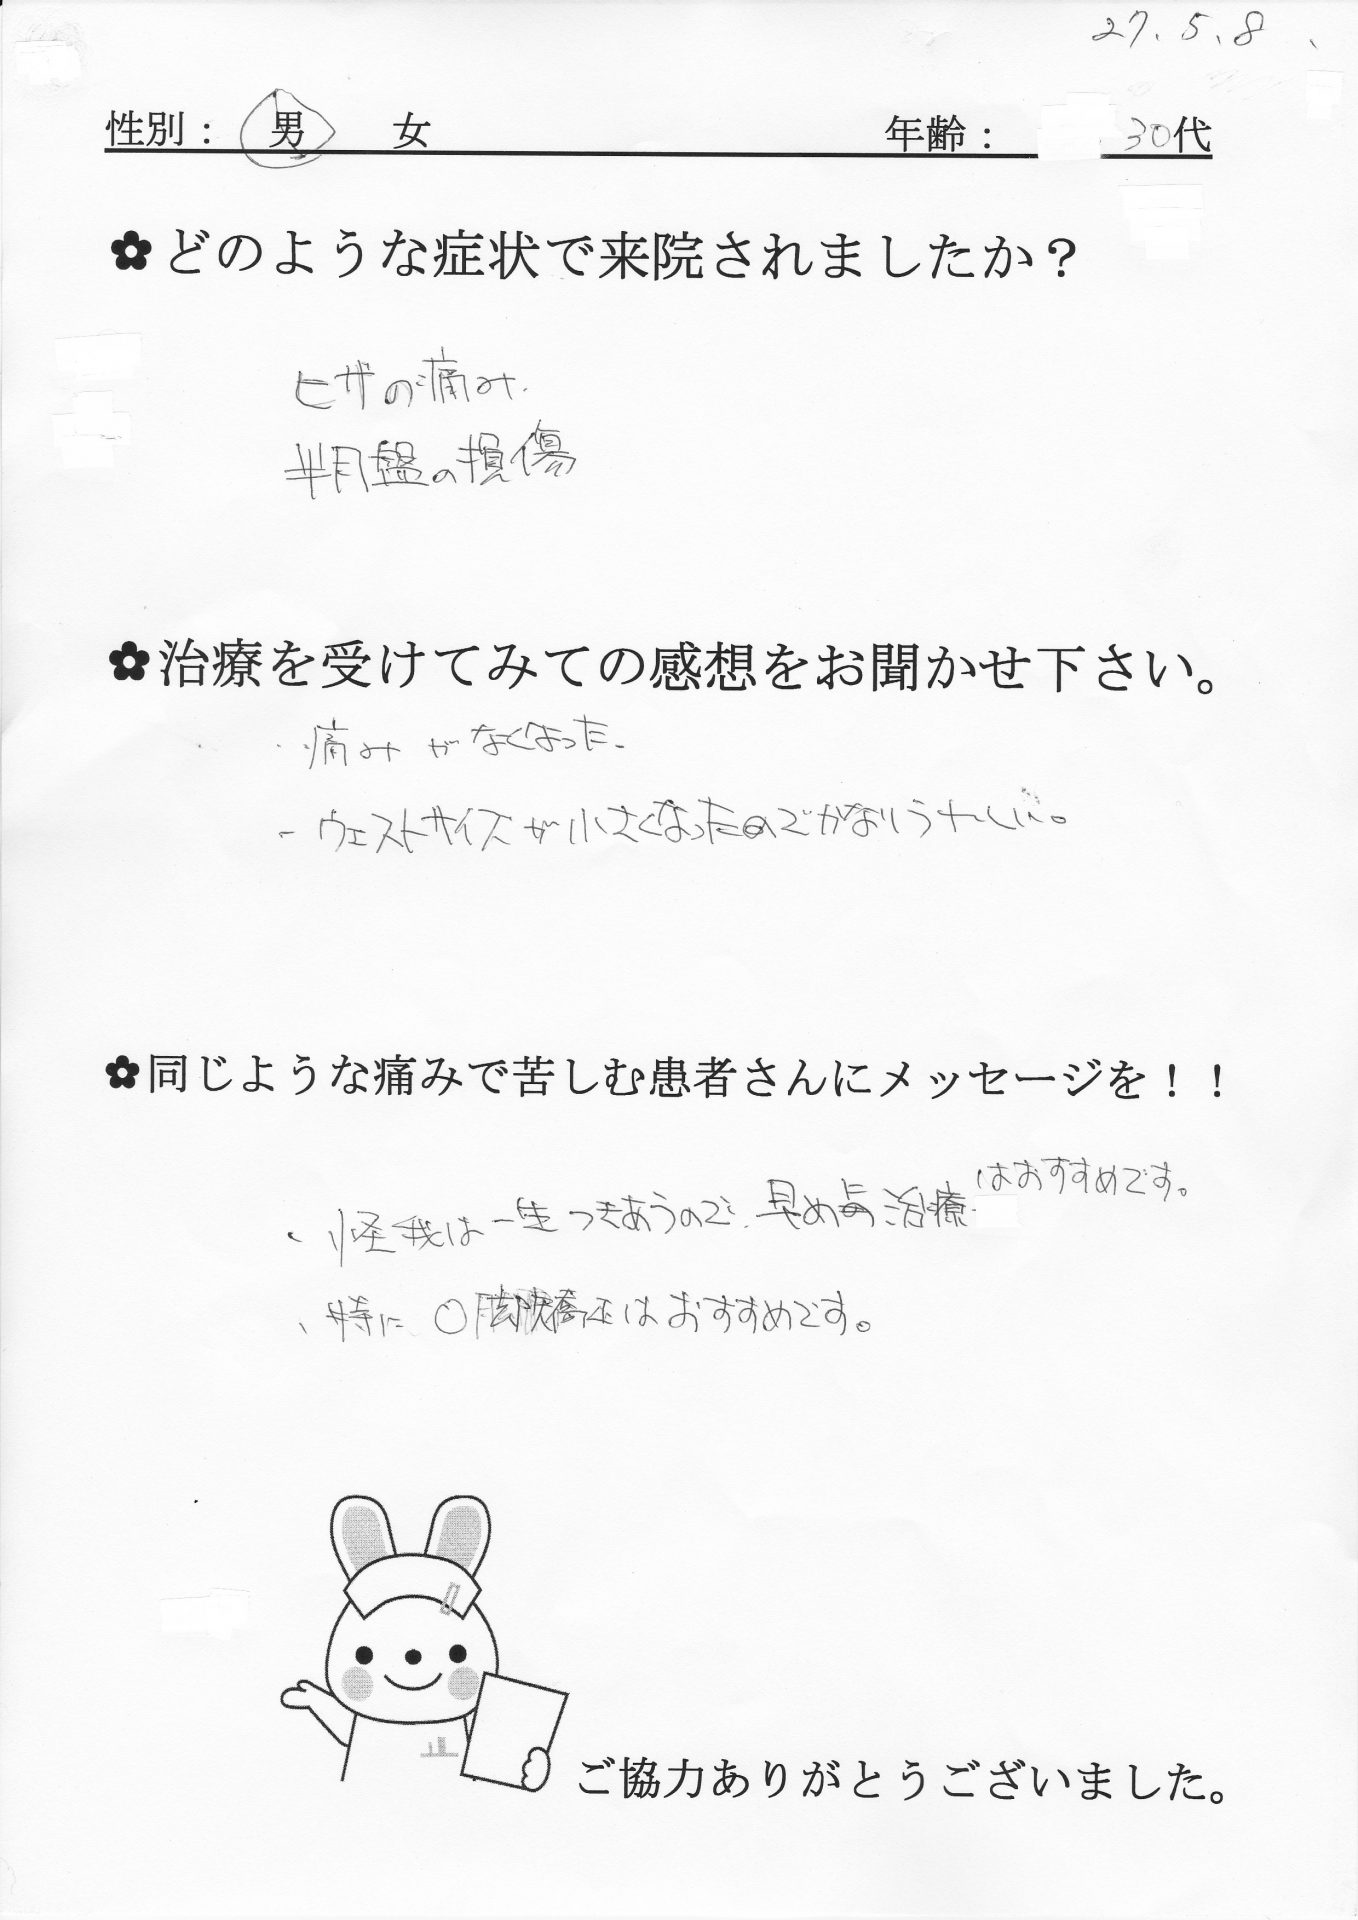 27.5.8.
性別： 男 女 年齢： 30代
✿どのような症状で来院されましたか？
ヒザの痛み.
半月盤の損傷
✿治療を受けてみての感想をお聞かせ下さい。
・痛みがなくなった.
・ウェストサイズが小さくなったのでかなりうれしい。
✿同じような痛みで苦しむ患者さんにメッセージを！！
・怪我は一生つきあうので、早めの治療はおすすめです。
、特に O脚矯正はおすすめです。
ご協力ありがとうございました。